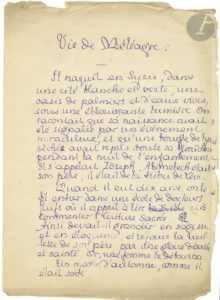 Vie de Méléagre.
Il naquit en Syrie, dans
une cité blanche et verte, une
oasis de palmiers et d'eaux vives,
sous une éblouissante lumière. On
racontait que sa naissance avait
été signalée par un événement
miraculeux, et qu'une
séchée avait repris toute sa
pendant la nuit de l'enfantement.
Ils l'appelait Joseph.
son père, il était de la tribu de
Quand il eut dix ans, on le
fit entrer dans une école de docteurs
où il apprit à lire
commenter l'Écriture Sacrée
Ainsi devait-il grandir en sagesse
et en éloquence, et réjouir la vieil-
lesse de son père par
et santé. Or, une femme le détourna
Un matin d'automne, comme il
était sorti